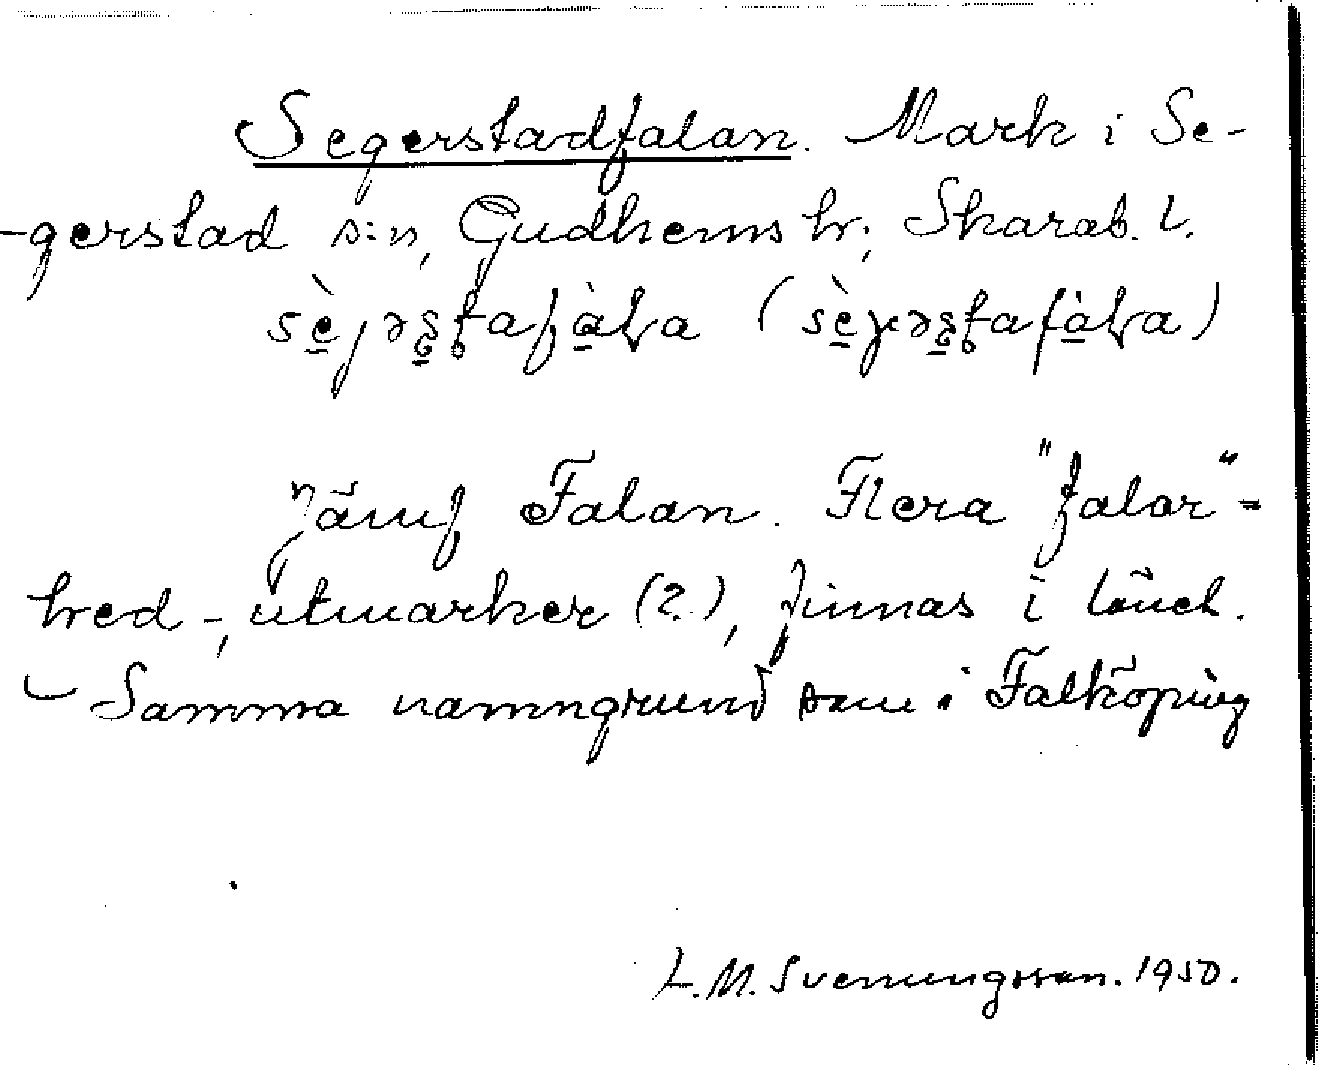 Segerstadfalan. Mark i Se-
-gerstad s:n, Gudhems hr; Skarab. l.
Jämf Falan. Flera "falar"=
hed-, utmarker (?), finnas i länet.
– Samma namngrund som i Falköping
L.M. Svenungsson. 1950.